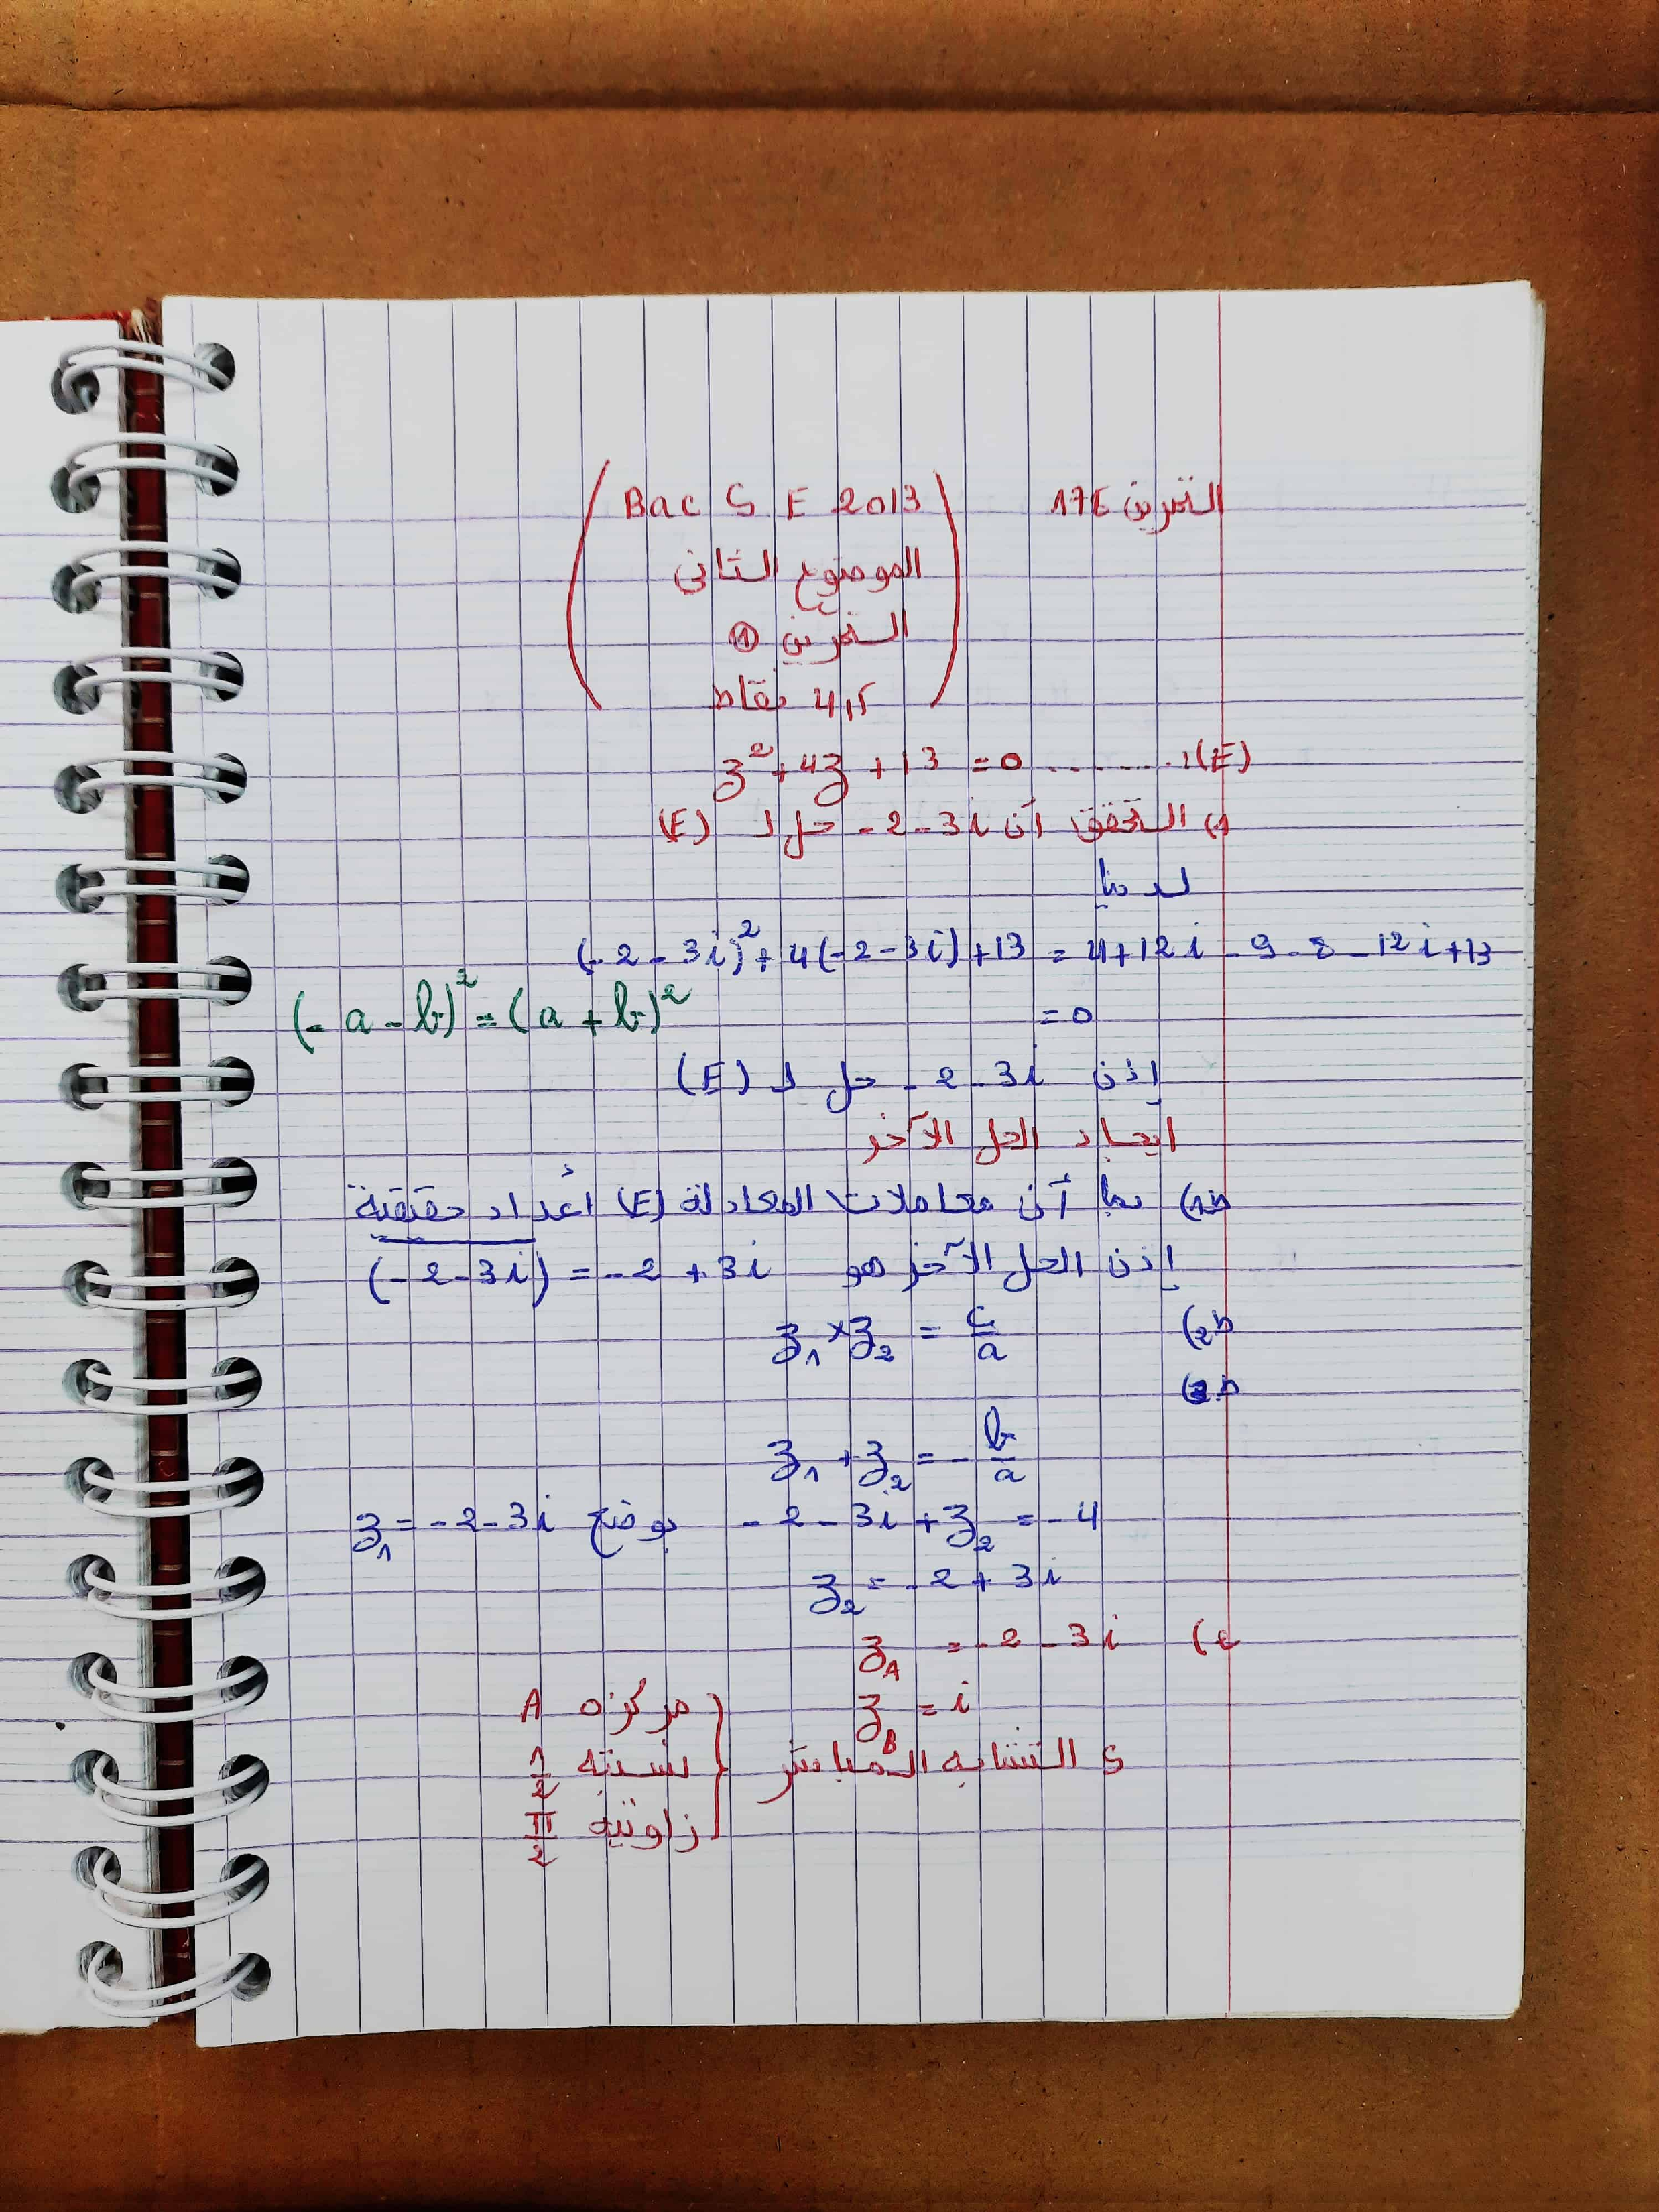 التمرين 176 (Bac S E 2013
الموضوع الثاني
التمرين ①
4,5 نقاط)
z² + 4z + 13 = 0 ........ (E)
1) التحقق أن -2-3i حل لـ (E)
لدينا
(-2-3i)² + 4(-2-3i) + 13 = 4+12i-9-8-12i+13
= 0
(-a-b)² = (a+b)²
إذن -2-3i حل لـ (E)
ايجاد الحل الآخر
ط1) بما أن معاملات المعادلة (E) أعداد حقيقية
إذن الحل الآخر هو \overline{(-2-3i)} = -2+3i
ط2) z₁ × z₂ = c/a
ط3)
z₁ + z₂ = -b/a
-2-3i + z₂ = -4 بوضع z₁ = -2-3i
z₂ = -2+3i
2) z_A = -2-3i
z_B = i
S التشابه المباشر } مركزه A
نسبته 1/2
زاويته π/2